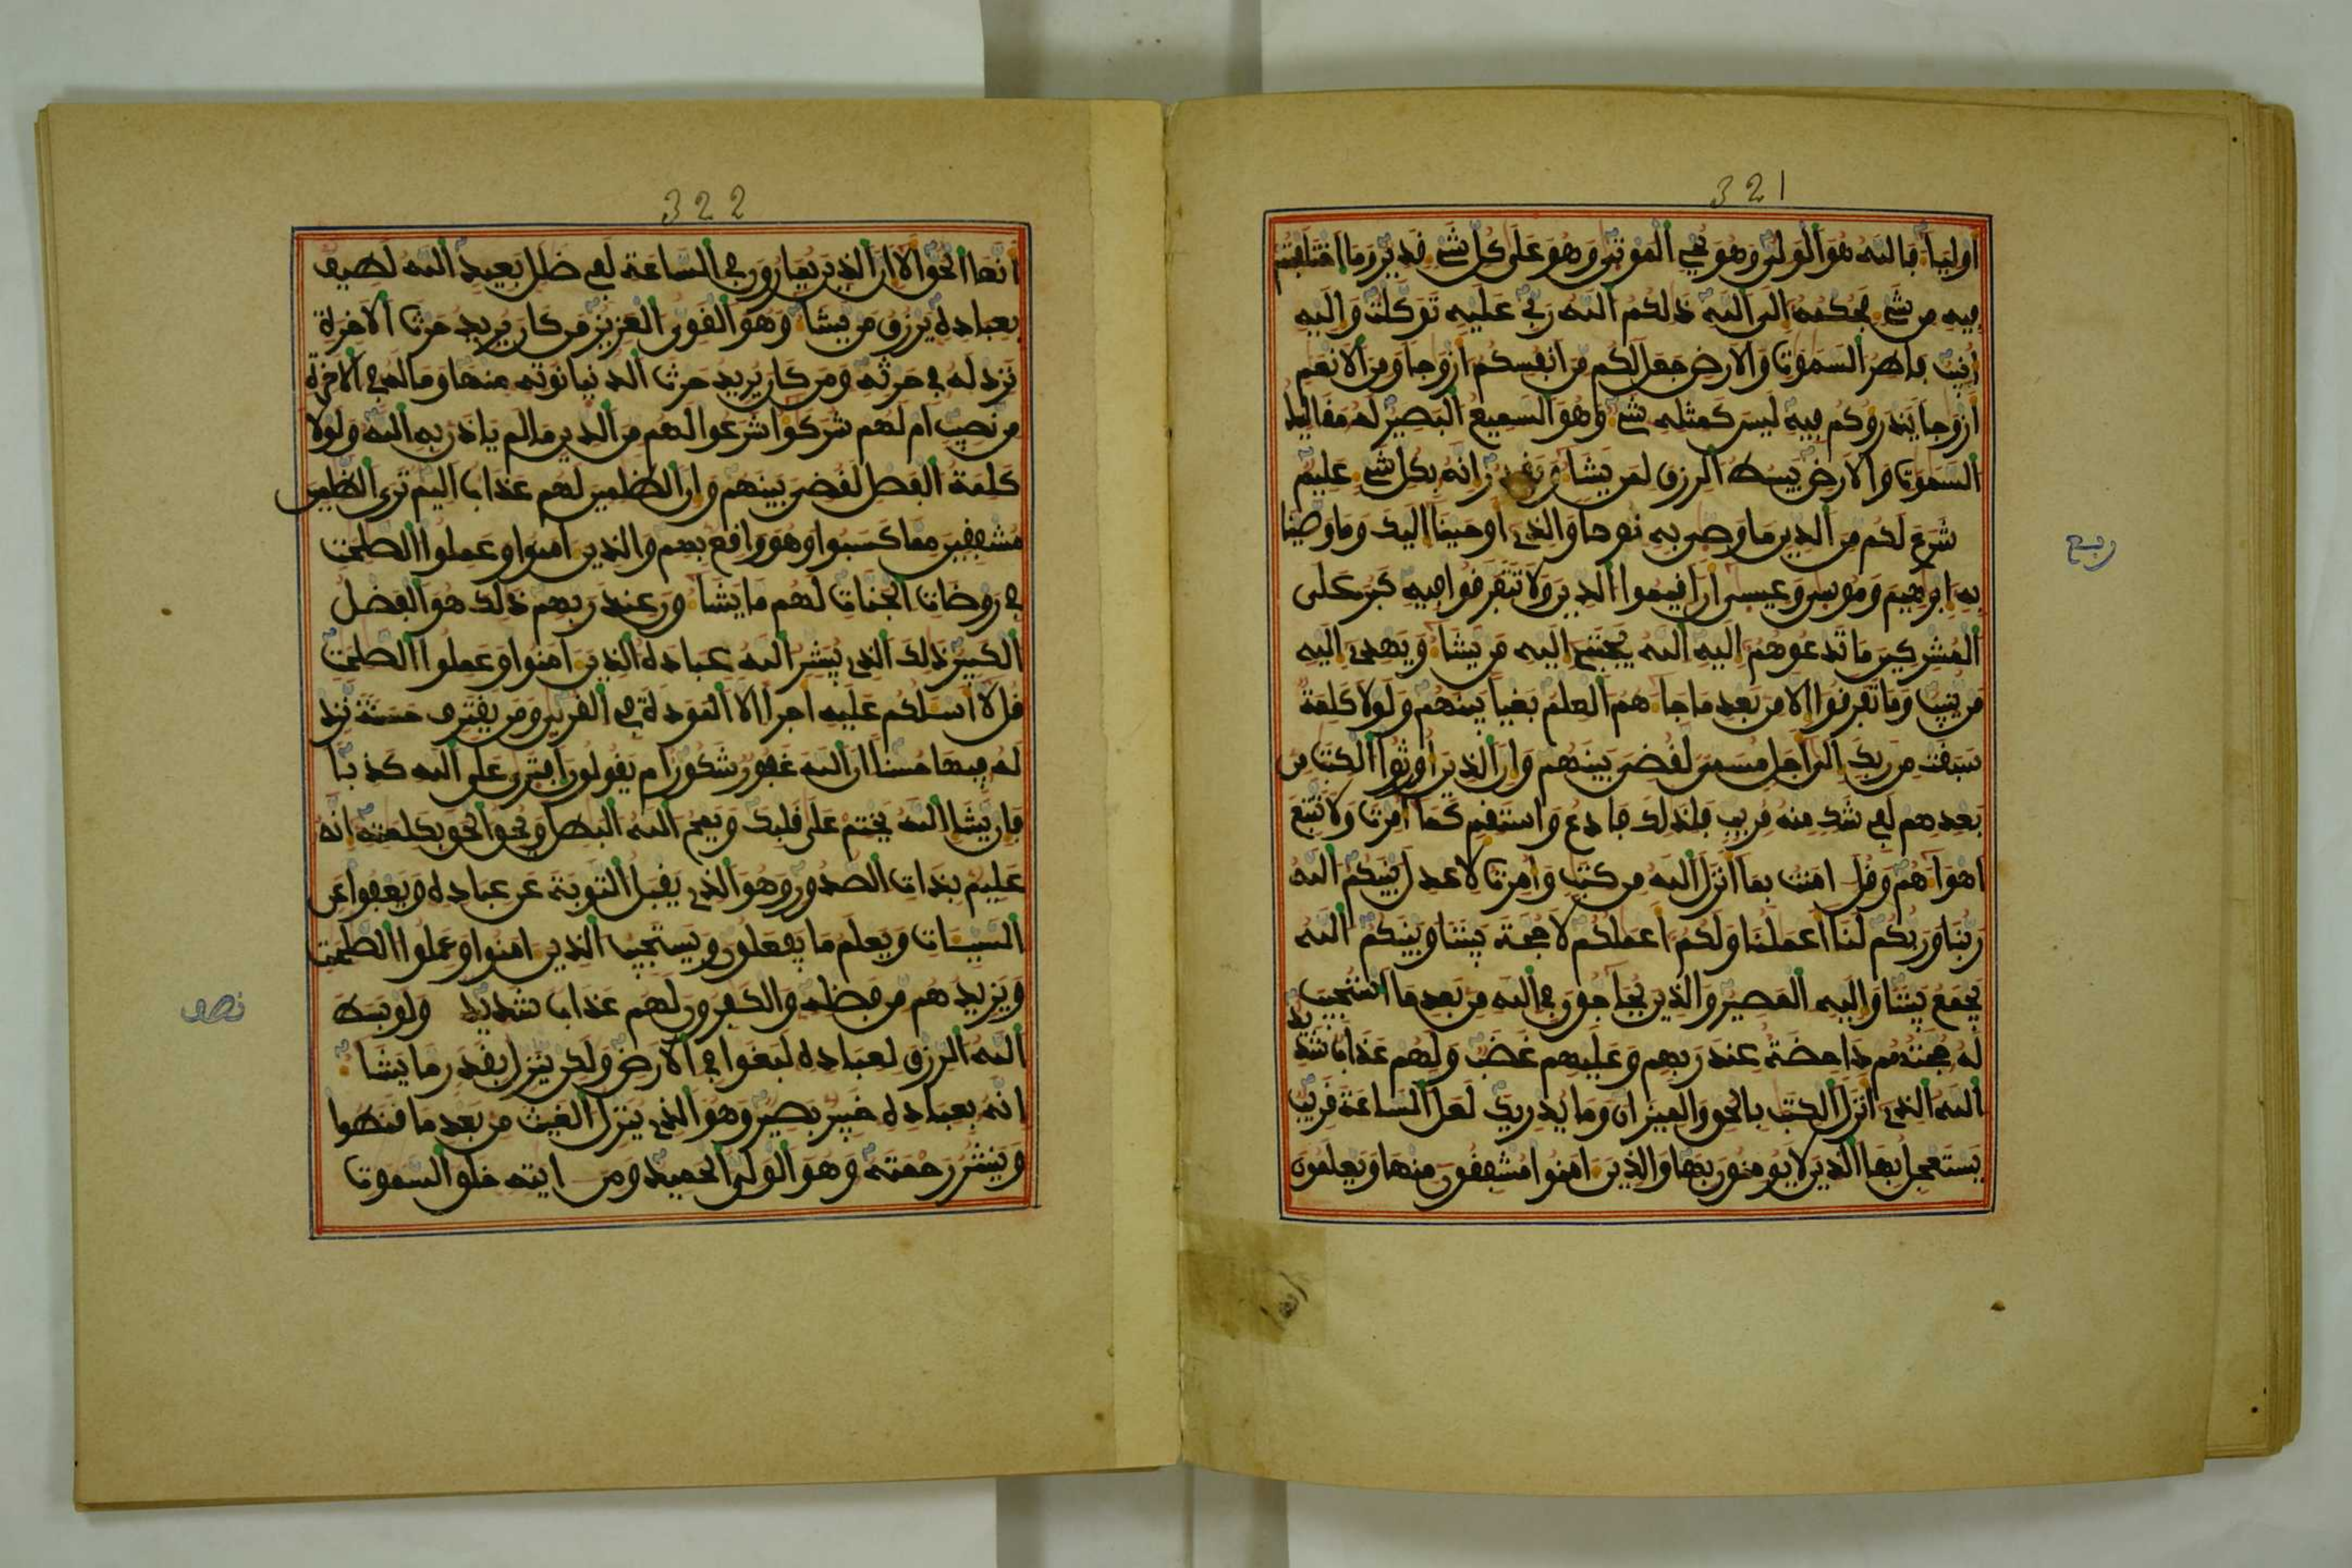 321
اولياء فالله هو الولي وهو يحي الموتى وهو على كل شيء قدير وما اختلفتم
فيه من شيء فحكمه الى الله ذلكم الله ربي عليه توكلت واليه
انيب فاطر السموت والارض جعل لكم من انفسكم ازوجا ومن الانعم
ازوجا يذروكم فيه ليس كمثله شيء وهو السميع البصير له مقاليد
السموت والارض يبسط الرزق لمن يشاء ويقدر انه بكل شيء عليم
شرع لكم من الدين ما وصى به نوحا والذي اوحينا اليك وما وصينا
به ابرهيم وموسى وعيسى ان اقيموا الدين ولا تتفرقوا فيه كبر على
المشركين ما تدعوهم اليه الله يجتبي اليه من يشاء ويهدي اليه
من ينيب وما تفرقوا الا من بعد ما جاءهم العلم بغيا بينهم ولولا كلمة
سبقت من ربك الى اجل مسمى لقضي بينهم وان الذين اورثوا الكتب من
بعدهم لفي شك منه مريب فلذلك فادع واستقم كما امرت ولا تتبع
اهواءهم وقل امنت بما انزل الله من كتب وامرت لاعدل بينكم الله
ربنا وربكم لنا اعملنا ولكم اعملكم لا حجة بيننا وبينكم الله
يجمع بيننا واليه المصير والذين يحاجون في الله من بعد ما استجيب
له حجتهم داحضة عند ربهم وعليهم غضب ولهم عذاب شديد
الله الذي انزل الكتب بالحق والميزان وما يدريك لعل الساعة قريب
يستعجل بها الذين لا يومنون بها والذين امنوا مشفقون منها ويعلمون
ربع
انها
322
انها الحق الا ان الذين يمارون في الساعة لفي ضلل بعيد الله لطيف
بعباده يرزق من يشاء وهو القوي العزيز من كان يريد حرث الاخرة
نزد له في حرثه ومن كان يريد حرث الدنيا نوته منها وما له في الاخرة
من نصيب ام لهم شركوا شرعوا لهم من الدين ما لم ياذن به الله ولولا
كلمة الفصل لقضي بينهم وان الظلمين لهم عذاب اليم ترى الظلمين
مشفقين مما كسبوا وهو واقع بهم والذين امنوا وعملوا الصلحت
في روضات الجنات لهم ما يشاءون عند ربهم ذلك هو الفضل
الكبير ذلك الذي يبشر الله عباده الذين امنوا وعملوا الصلحت
قل لا اسلكم عليه اجرا الا المودة في القربى ومن يقترف حسنة نزد
له فيها حسنا ان الله غفور شكور ام يقولون افترى على الله كذبا
فان يشا الله يختم على قلبك ويمح الله البطل ويحق الحق بكلمته انه
عليم بذات الصدور وهو الذي يقبل التوبة عن عباده ويعفوا عن
السيئات ويعلم ما يفعلون ويستجيب الذين امنوا وعملوا الصلحت
ويزيدهم من فضله والكفرون لهم عذاب شديد ولو بسط
الله الرزق لعباده لبغوا في الارض ولكن ينزل بقدر ما يشاء
انه بعباده خبير بصير وهو الذي ينزل الغيث من بعد ما قنطوا
وينشر رحمته وهو الولي الحميد ومن ايته خلق السموت
نصف